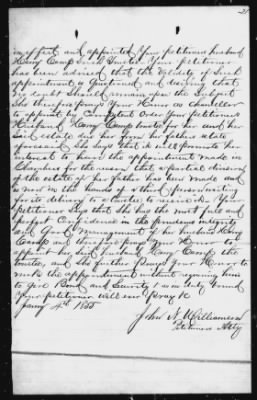 21
in effect and appointed your petitioners husband
Henry Camp such Trustee. Your petitioner
has been advised that the validity of such
appointment is questioned and desiring that
no doubt should remain upon the subject
She therefore prays Your Honor as chancellor
to appoint by competent order Your petitioners
husband Henry Camp trustee for her and her
said estate due her from her fathers estate
aforesaid. She says that it will promote her
interest to have the appointment made in
Chambers for the reason that a partial division
of the estate of her father has been made and
is now in the hands of a third person waiting
for its delivery to a trustee to receive it. Your
petitioner says that she has the most full and
perfect confidence in the prudence integrity
and good management of her husband Henry
Camp and therefore prays Your Honor to
appoint her said husband Henry Camp the
trustee, and she further prays Your Honor to
make the appointment without requiring him
to give Bond and Security & as in duty bound
Your petitioner will ever pray &
Jany 4th 1855
John N. Williamson
Petitioners Atty